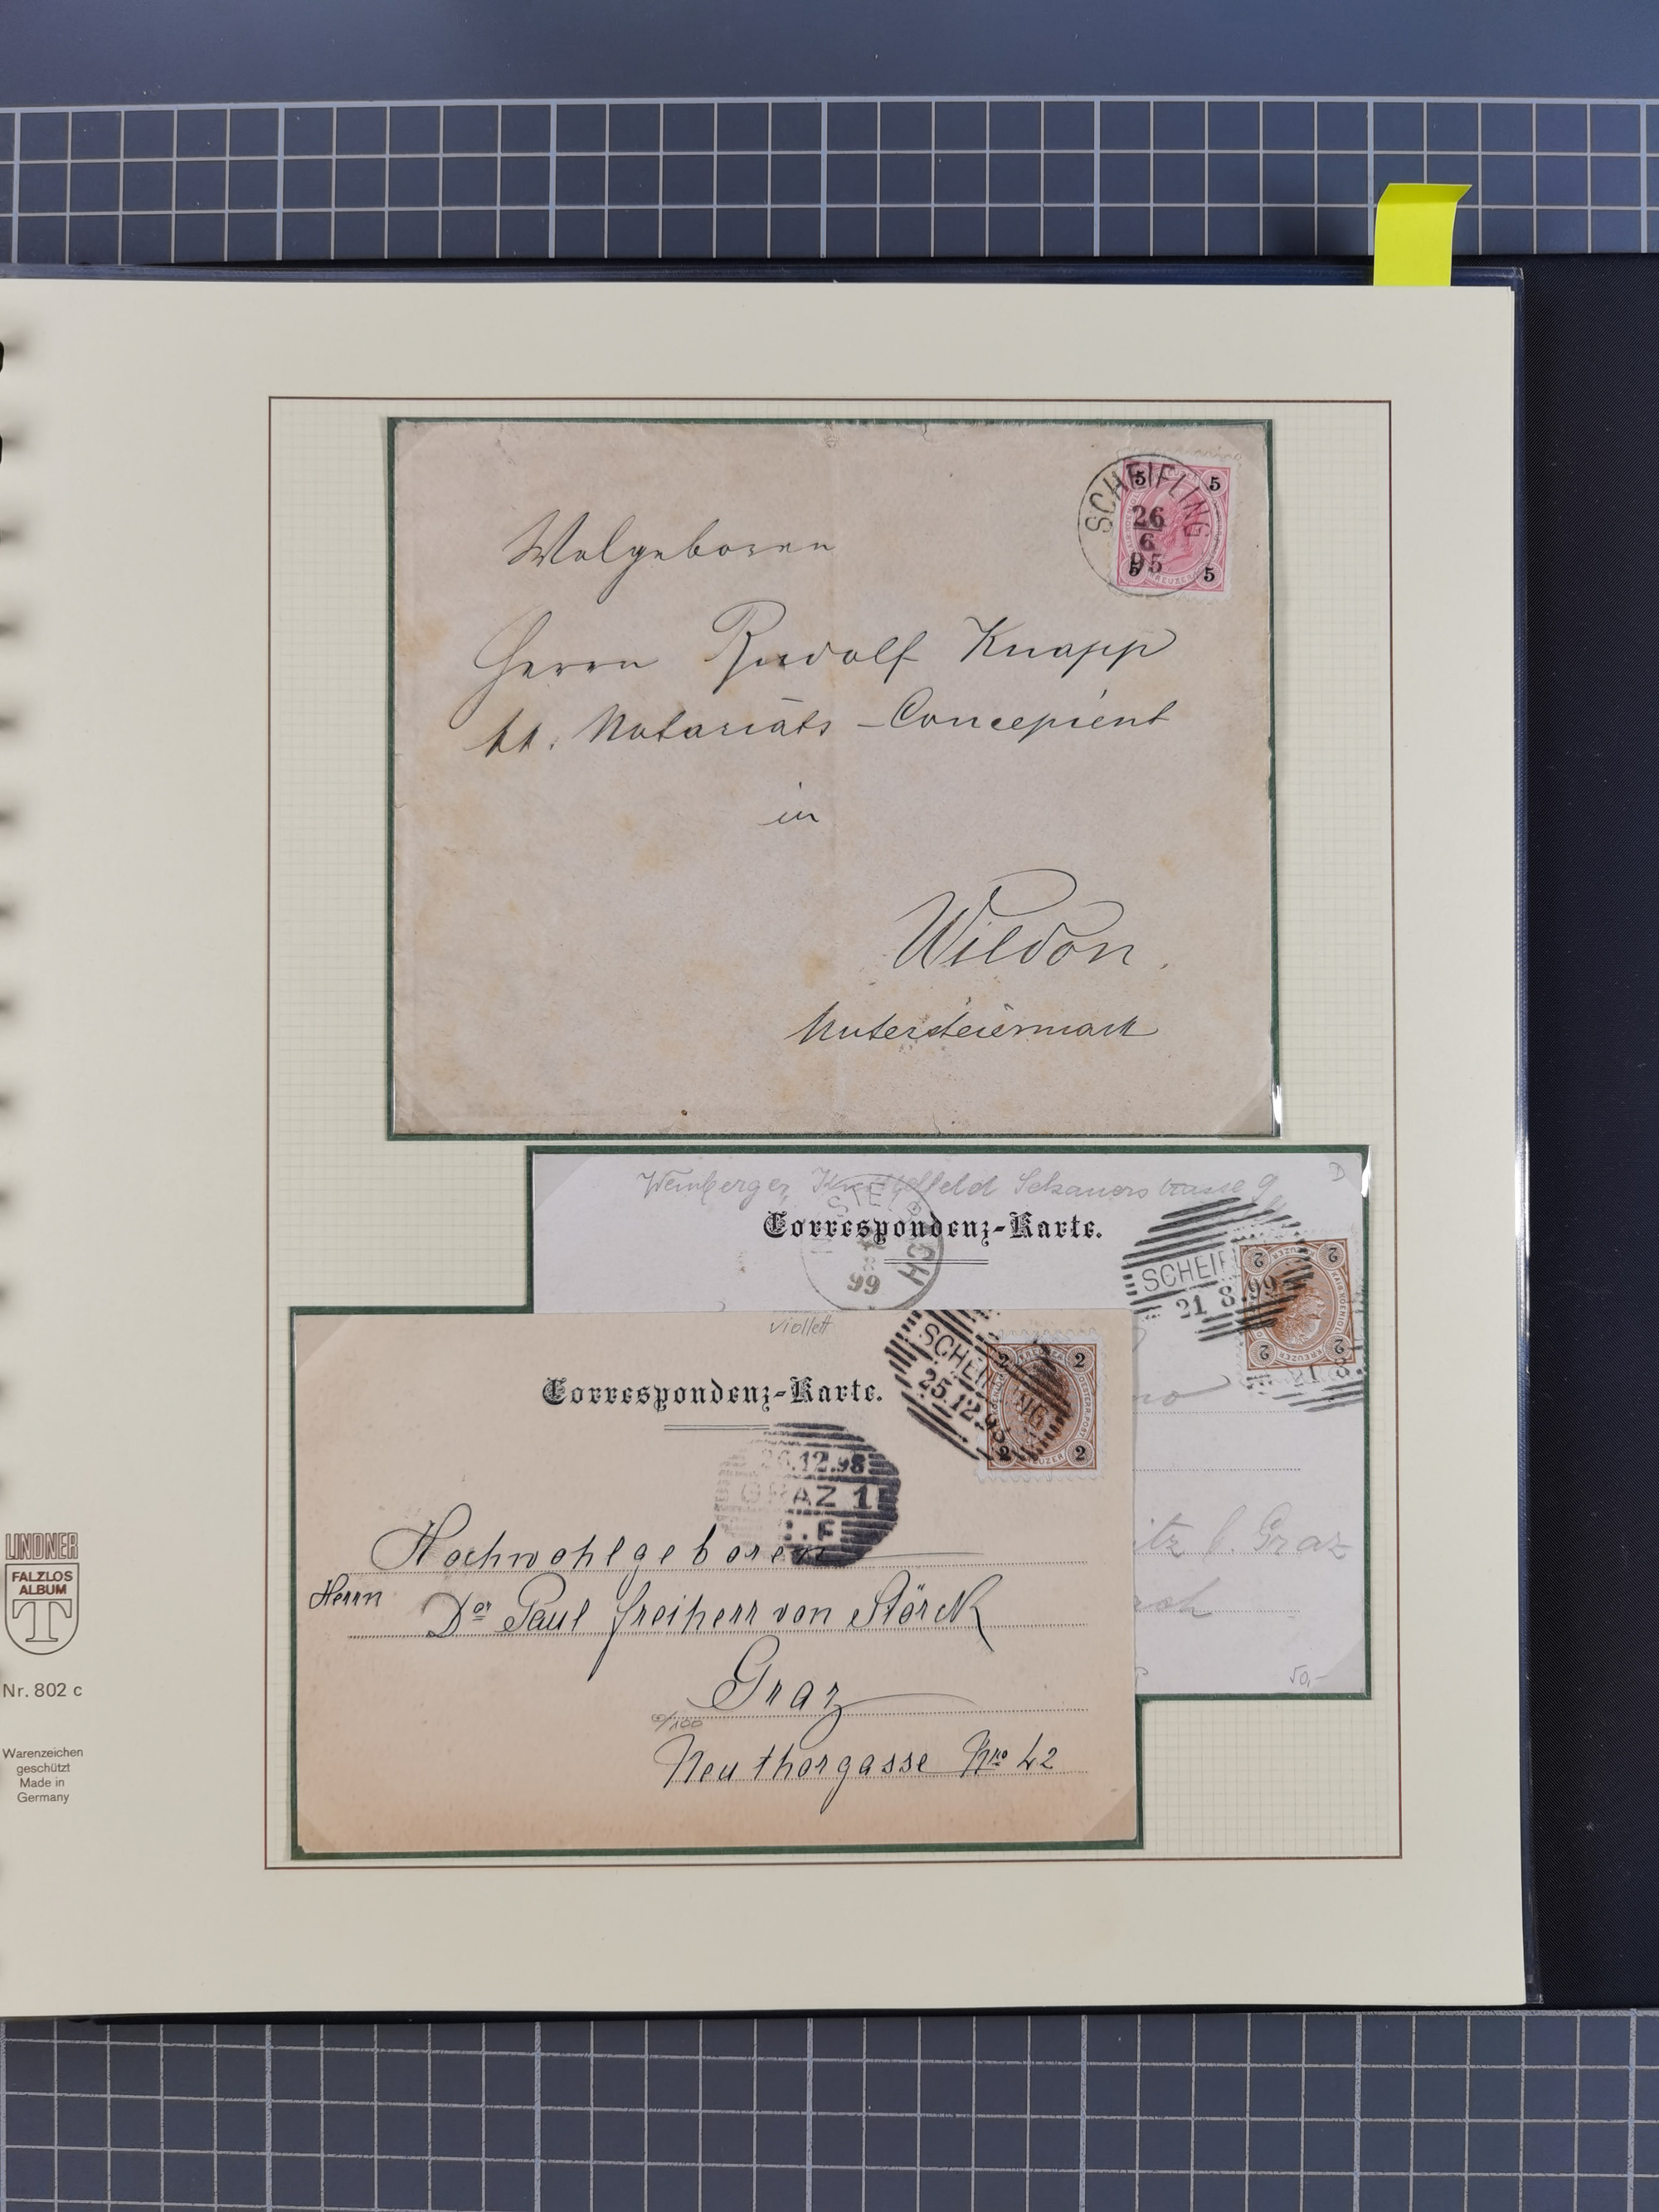 SCHEIFLING
26
6
95
5 5
5 5
KREUZER
Wolgeboren
Herrn Rudolf Knapp
kk. Notariats-Concipient
in
Wildon.
Untersteiermark
Weinberger, Knittelfeld Sekauerstrasse 9
D
Correspondenz-Karte.
99
SCHEIF
21 8 99
2 2
2 2
KREUZER
21.8.
itz b. Graz
50,-
violett
Correspondenz-Karte.
SCHEIFLING
25.12.98
2 2
2 2
12.98
GRAZ 1
Hochwohlgeboren
Herrn Dor Paul Freiherr von Störck
Graz
6/100
Neuthorgasse Nro 42
LINDNER
FALZLOS
ALBUM
T
Nr. 802 c
Warenzeichen
geschützt
Made in
Germany